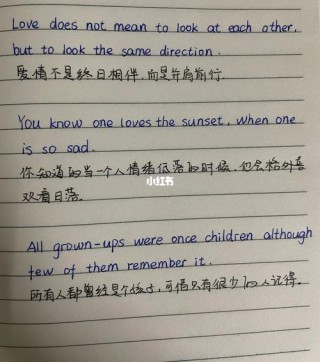 Love does not mean to look at each other,
but to look the same direction.
爱情不是终日相伴,而是并肩前行.
You know one loves the sunset, when one
is so sad.
你知道的当一个人情绪低落的时候,也会格外喜
欢看日落.
小红书
All grown-ups were once children although
few of them remember it.
所有人都曾经是个孩子,可惜只有很少的人记得。